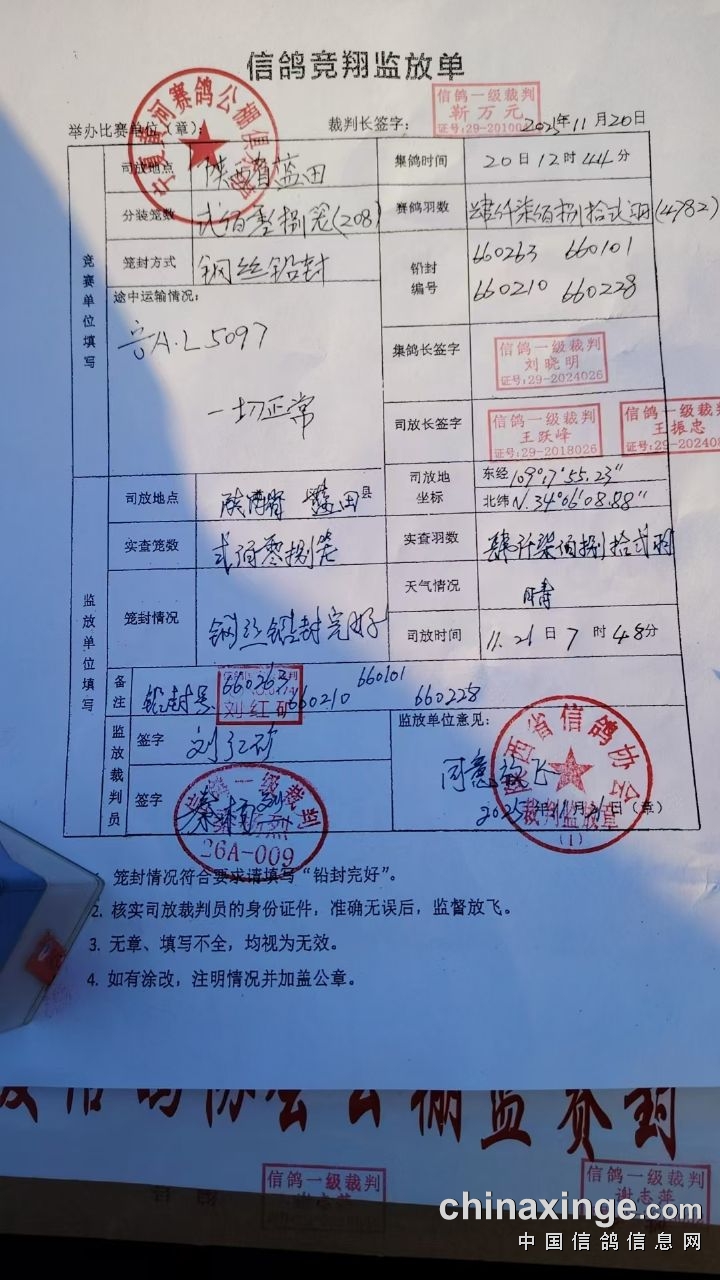 信鸽竞翔监放单
举办比赛单位(章): 裁判长签字: 信鸽一级裁判 靳万元 2025年11月20日
竞赛单位填写
司放地点 陕西省蓝田 集鸽时间 20日12时44分
分装笼数 弍佰零捌笼(208) 赛鸽羽数 肆仟柒佰捌拾弍羽(4782)
笼封方式 钢丝铅封 铅封编号 660263 660101
660210 660228
途中运输情况:
鲁A.L5097
一切正常
集鸽长签字 信鸽一级裁判
刘晓明
证号:29-2024026
司放长签字 信鸽一级裁判
王跃峰
证号:29-2018026
信鸽一级裁判
王振忠
监放单位填写
司放地点 陕西省 蓝田县 司放地坐标 东经 109°17′55.23″
北纬 N.34°06′08.88″
实查笼数 弍佰零捌笼 实查羽数 肆仟柒佰捌拾弍羽
笼封情况 钢丝铅封完好 天气情况 晴
司放时间 11.21日7时48分
备注 铅封号 660263 660101
660210 660228
刘红矿
监放裁判员 签字 刘红矿 监放单位意见:
同意放飞
签字 2025年11月21日(章)
一级裁判
26A-009
西省信鸽协会
裁判监放章
(1)
笼封情况符合要求请填写“铅封完好”。
2. 核实司放裁判员的身份证件,准确无误后,监督放飞。
3. 无章、填写不全,均视为无效。
4. 如有涂改,注明情况并加盖公章。
信鸽协会公棚监赛封
信鸽一级裁判
信鸽一级裁判
谢志萍
chinaxinge.com
中国信鸽信息网